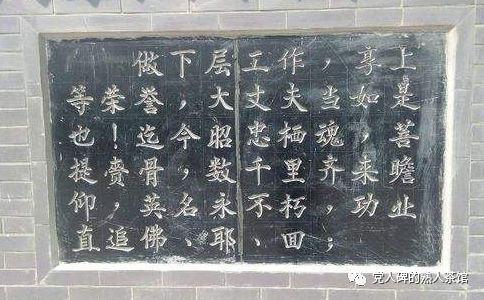 上是菩瞻业
享如，来功
，当魂齐，；
作夫栖里朽回
工丈忠千不、
层大昭数永耶
下，今，名、
做誉迄骨英佛
荣！赍，追
等也提仰直
党人碑的熟人茶馆